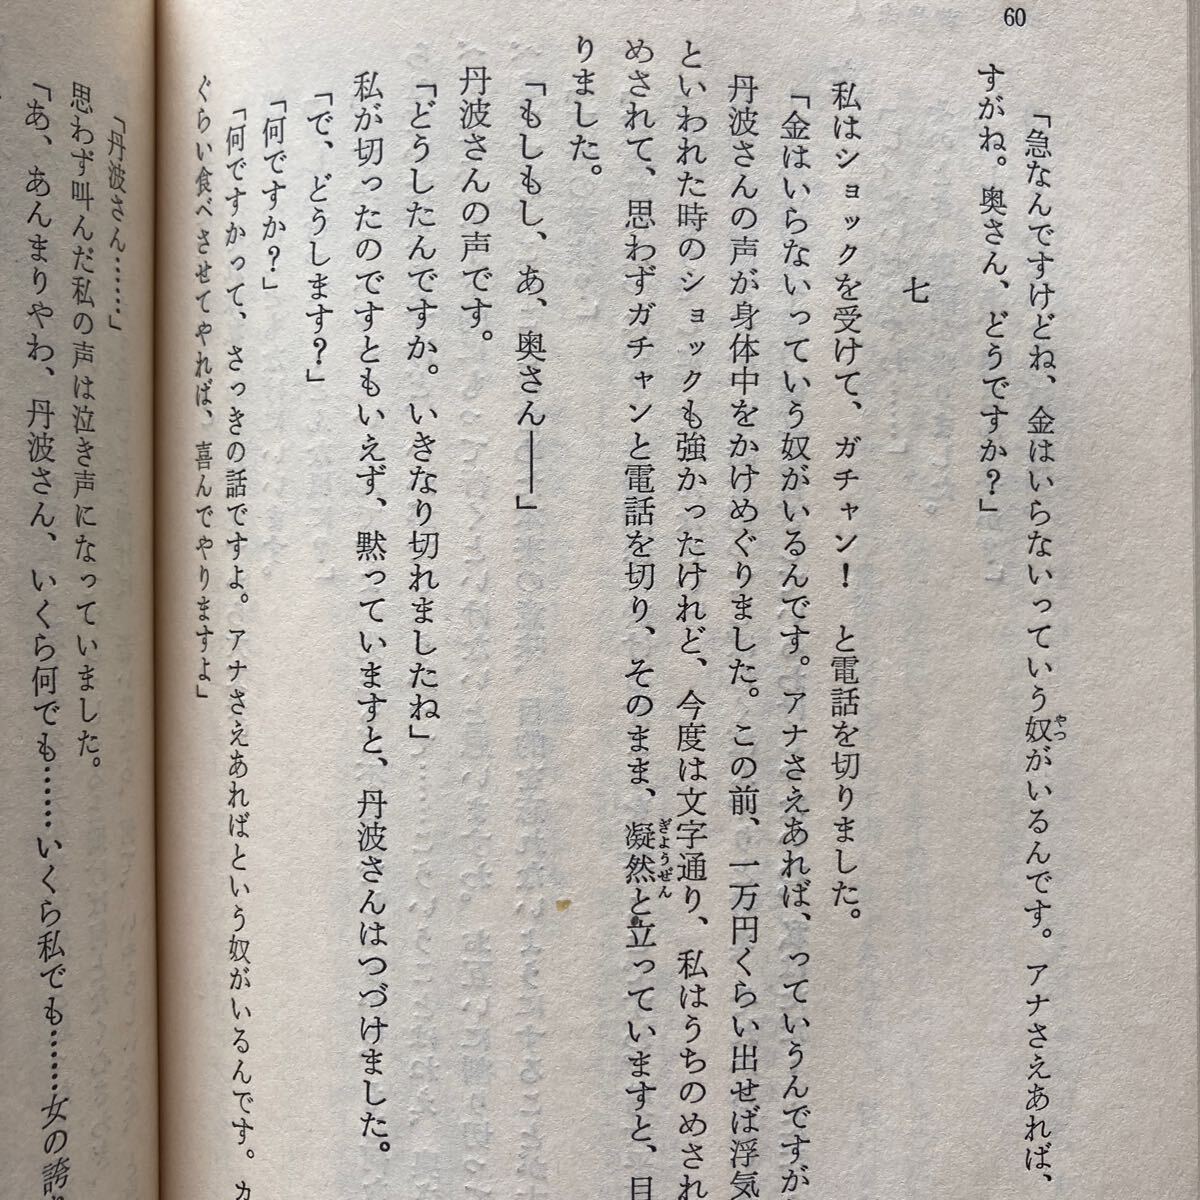 60
「急なんですけどね、金はいらないっていう奴がいるんです。アナさえあれば、
やつ
すがね。奥さん、どうですか？」
七
私はショックを受けて、ガチャン！　と電話を切りました。
「金はいらないっていう奴がいるんです。アナさえあれば、っていうんですが
丹波さんの声が身体中をかけめぐりました。この前、一万円くらい出せば浮気
といわれた時のショックも強かったけれど、今度は文字通り、私はうちのめされ
めされて、思わずガチャンと電話を切り、そのまま、凝然と立っていますと、目
ぎょうぜん
りました。
「もしもし、あ、奥さん――」
丹波さんの声です。
「どうしたんですか。いきなり切れましたね」
私が切ったのですともいえず、黙っていますと、丹波さんはつづけました。
「で、どうします？」
「何ですか？」
「何ですかって、さっきの話ですよ。アナさえあればという奴がいるんです。カ
ぐらい食べさせてやれば、喜んでやりますよ」
「丹波さん……」
思わず叫んだ私の声は泣き声になっていました。
「あ、あんまりやわ、丹波さん、いくら何でも……いくら私でも……女の誇